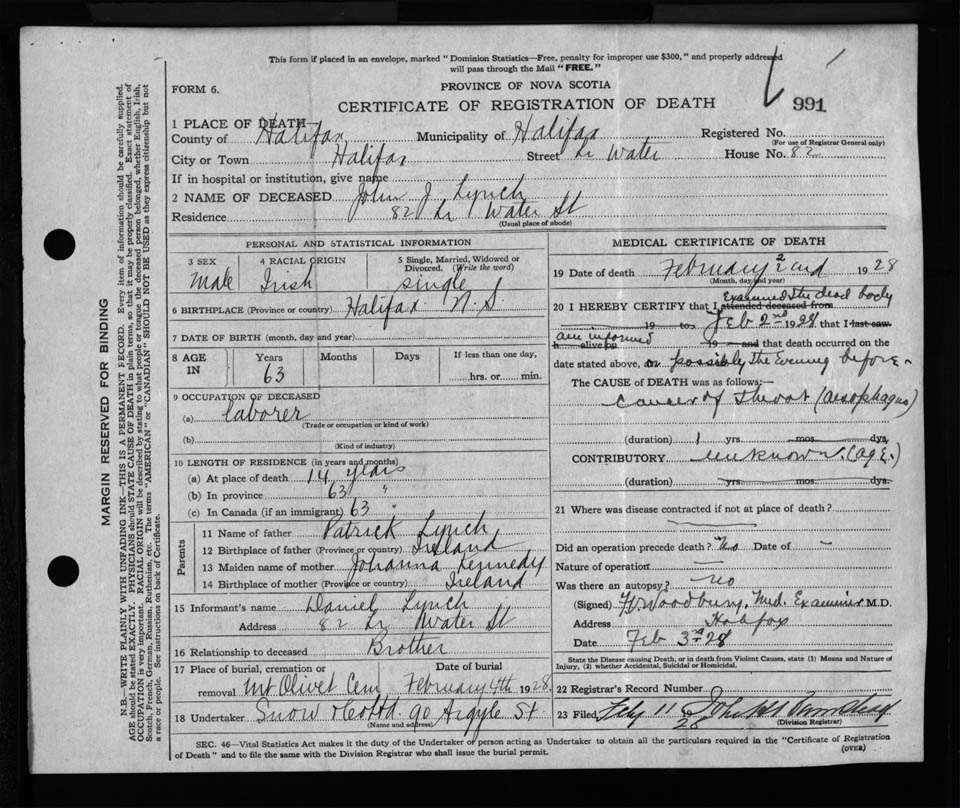 This form if placed in an envelope, marked "Dominion Statistics—Free, penalty for improper use $300," and properly addressed
will pass through the Mail "FREE."
FORM 6.
PROVINCE OF NOVA SCOTIA
CERTIFICATE OF REGISTRATION OF DEATH
991
1 PLACE OF DEATH
County of Halifax Municipality of Halifax Registered No.
(For use of Registrar General only)
City or Town Halifax Street Lr Water House No. 82
If in hospital or institution, give name
2 NAME OF DECEASED John J. Lynch
Residence 82 Lr Water St
(Usual place of abode)
PERSONAL AND STATISTICAL INFORMATION
3 SEX 4 RACIAL ORIGIN 5 Single, Married, Widowed or
Divorced. (Write the word)
Male Irish single
6 BIRTHPLACE (Province or country) Halifax N.S.
7 DATE OF BIRTH (month, day and year)
8 AGE IN Years Months Days If less than one day,
63 hrs. or min.
9 OCCUPATION OF DECEASED
(a) laborer
(Trade or occupation or kind of work)
(b)
(Kind of industry)
10 LENGTH OF RESIDENCE (in years and months)
(a) At place of death 14 years
(b) In province 63 "
(c) In Canada (if an immigrant) 63 "
Parents
11 Name of father Patrick Lynch
12 Birthplace of father (Province or country) Ireland
13 Maiden name of mother Johanna Kennedy
14 Birthplace of mother (Province or country) Ireland
15 Informant's name Daniel Lynch
Address 82 Lr Water St
16 Relationship to deceased Brother
17 Place of burial, cremation or Date of burial
removal Mt Olivet Cem February 4th 1928
18 Undertaker Snow & Co Ltd. 90 Argyle St
(Name and address)
MEDICAL CERTIFICATE OF DEATH
19 Date of death February 2nd 1928
(Month, day and year)
Examined the dead body
20 I HEREBY CERTIFY that I attended deceased from
19 to Feb 2nd 1928 that I last saw
am informed
h alive on 19 and that death occurred on the
date stated above, on possibly the Evening before
The CAUSE of DEATH was as follows:—
Cancer of Throat (Aesophagus)
(duration) 1 yrs. mos. dys.
CONTRIBUTORY unknown (age.)
(duration) yrs. mos. dys.
21 Where was disease contracted if not at place of death?
Did an operation precede death? No Date of –
Nature of operation –
Was there an autopsy? no
(Signed) Woodbury, Med. Examiner M.D.
Address Halifax
Date Feb 3rd 28
State the Disease causing Death, or in death from Violent Causes, state (1) Means and Nature of
Injury, (2) whether Accidental, Suicidal or Homicidal.
22 Registrar's Record Number
23 Filed Feby 11 28 John H
(Division Registrar)
SEC. 46—Vital Statistics Act makes it the duty of the Undertaker or person acting as Undertaker to obtain all the particulars required in the "Certificate of Registration
of Death" and to file the same with the Division Registrar who shall issue the burial permit.
(OVER)
MARGIN RESERVED FOR BINDING
N.B.—WRITE PLAINLY WITH UNFADING INK—THIS IS A PERMANENT RECORD. Every item of information should be carefully supplied.
AGE should be stated EXACTLY. PHYSICIANS should STATE CAUSE OF DEATH in plain terms, so that it may be properly classified. Exact statement of
OCCUPATION is very important. RACIAL ORIGIN will be described by stating to what people or tongue the deceased person belonged, whether English, Irish,
Scotch, French, German, Russian, Ruthenian, etc. The terms "AMERICAN" or "CANADIAN" SHOULD NOT BE USED as they express citizenship but not
a race or people. See instructions on back of Certificate.